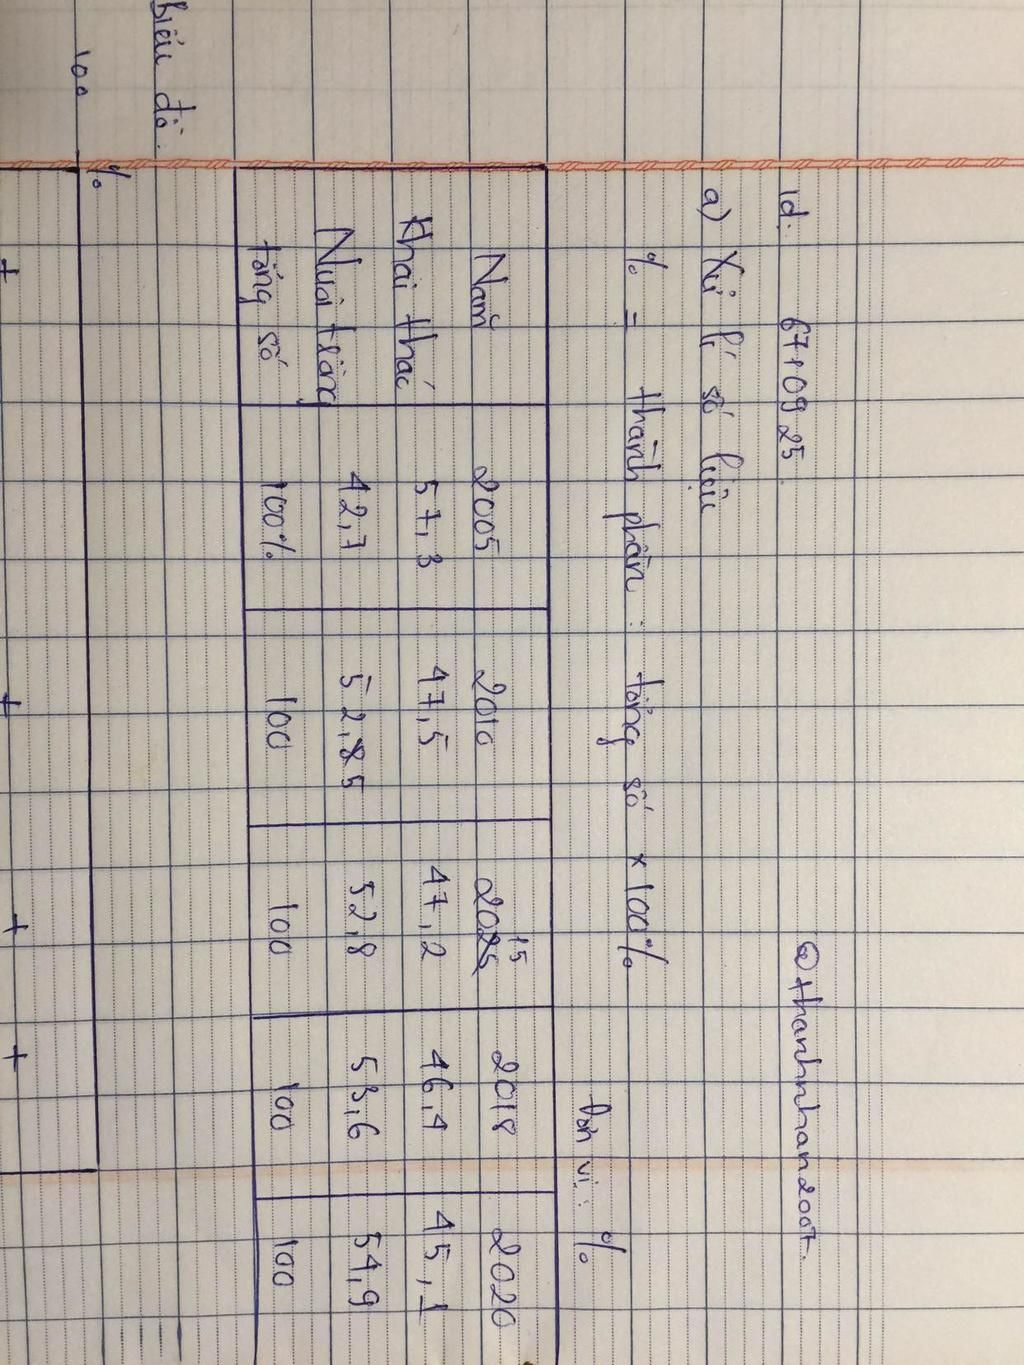 Id: 6710925 @thanhnhan2007.
a) Xử lí số liệu
% = thành phần : tổng số x 100%
Đơn vị: %
Năm 2005 2010 2015 2018 2020
Khai thác 57,3 47,5 47,2 46,4 45,1
Nuôi trồng 42,7 52,5 52,8 53,6 54,9
tổng số 100% 100 100 100 100
biểu đồ.
%
100